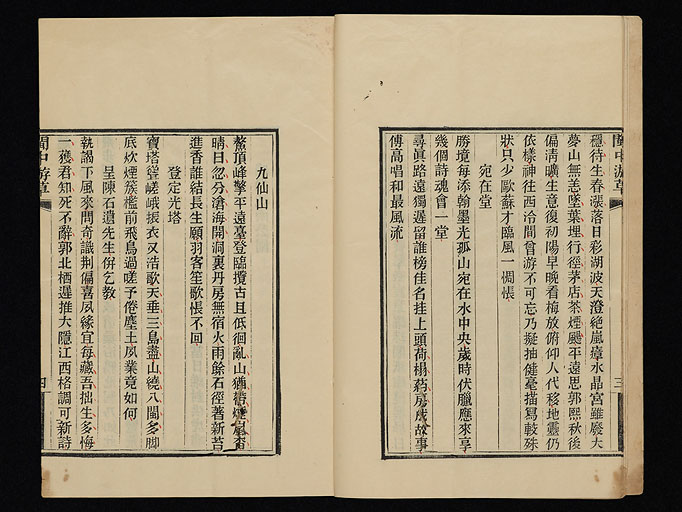 穩待生春漲落日彩湖波天澄絶嵐瘴水晶宮雖廢大
夢山無恙墜葉埋行徑茅店茶煙颺平遠思郭熙秋後
偏清曠生意復初陽早晚看梅放俯仰人代移地靈仍
依樣神往西泠間曾游不可忘乃擬抽健毫描寫較殊
狀只少歐蘇才臨風一惆悵
宛在堂
勝境每添翰墨光孤山宛在水中央歲時伏臘應來享
幾個詩魂會一堂
尋眞路遠獨遲留誰榜佳名挂上頭荷榻葯房成故事
傅高唱和最風流
閩中游草
三
九仙山
鰲頂峰擎平遠臺登臨攬古且低徊亂山猶帶煙嵐杳
晴日忽分滄海開洞裏丹房無宿火雨餘石徑著新苔
進香誰結長生願羽客笙歌悵不回
登定光塔
寶塔徑嵯峨振衣又浩歌天垂三島盡山繞八閩多脚
底炊煙簇檻前飛鳥過嗟予倦塵土夙業竟如何
呈陳石遺先生併乞教
執謁下風來問奇識荆偏喜夙緣宜每藏吾拙生多悔
一獲君知死不辭郭北栖遲推大隱江西格調可新詩
閩中游草
四